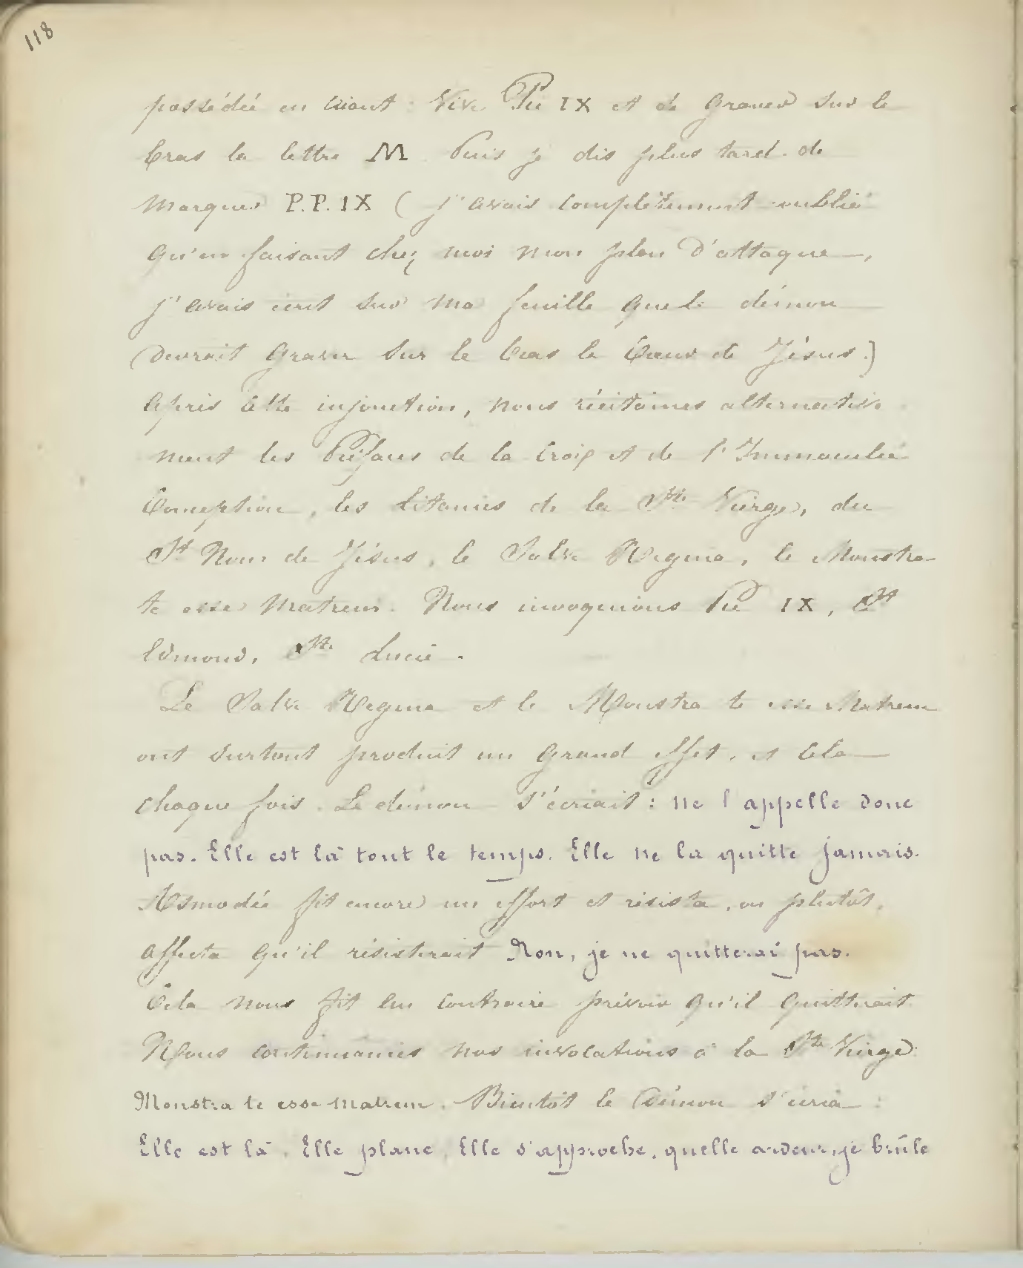 118
possédée en criant : Vive Pie IX et de graver sur le
bras la lettre M Puis je dis plus tard de
marquer P.P. IX ( j'avais complètement oublié
qu'en faisant chez moi mon plan d'attaque,
j'avais écrit sur ma feuille que le démon
devrait graver sur le bras le Cœur de Jésus.)
Après cette injonction, nous récitâmes alternative
ment les Préfaces de la Croix et de l'Immaculée
Conception, les litanies de la Ste Vierge, du
St Nom de Jésus, le Salve Regina, le Monstra
te esse Matrem. Nous invoquions Pie IX, St
Edmond, Ste Lucie.
Le Salve Regina et le Monstra te esse Matrem
ont surtout produit un grand effet, et cela
chaque fois. Le démon s'écriait : ne l'appelle donc
pas. Elle est là tout le temps. Elle ne la quitte jamais.
Asmodée fit encore un effort et résista, ou plutôt,
affecta qu'il résisterait Non, je ne quitterai pas.
Cela nous fit au contraire prévoir qu'il quitterait
Nous continuâmes nos invocations à la Ste Vierge :
Monstra te esse matrem. Bientôt le Démon s'écria :
Elle est là. Elle plane. Elle s'approche, quelle ardeur, je brûle